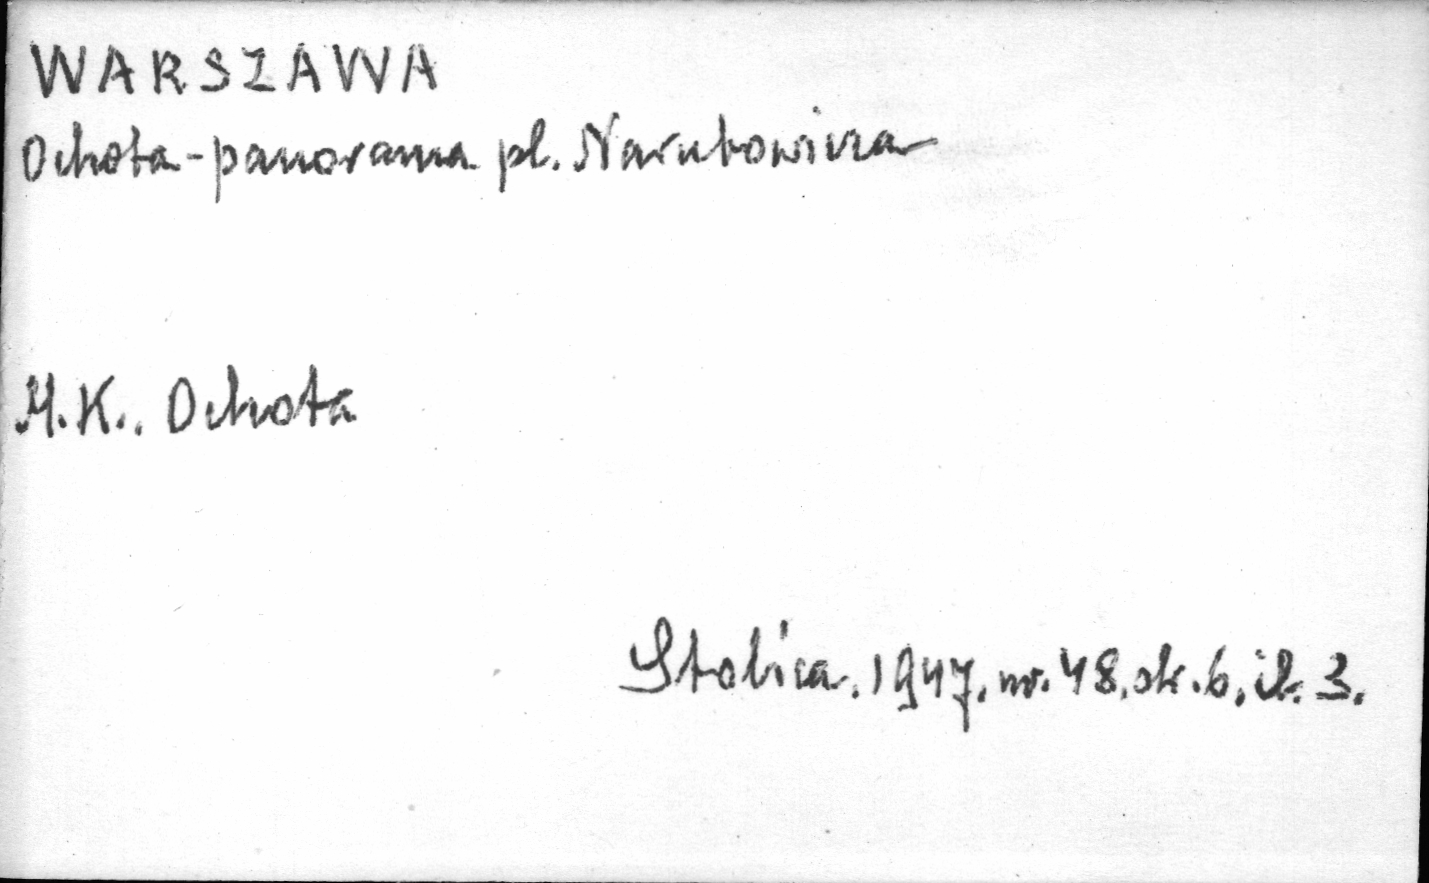 WARSZAWA
Ochota-panorama pl. Narutowicza
M.K.. Ochota
Stolica. 1947. nr. 48. str. 6. il. 3.